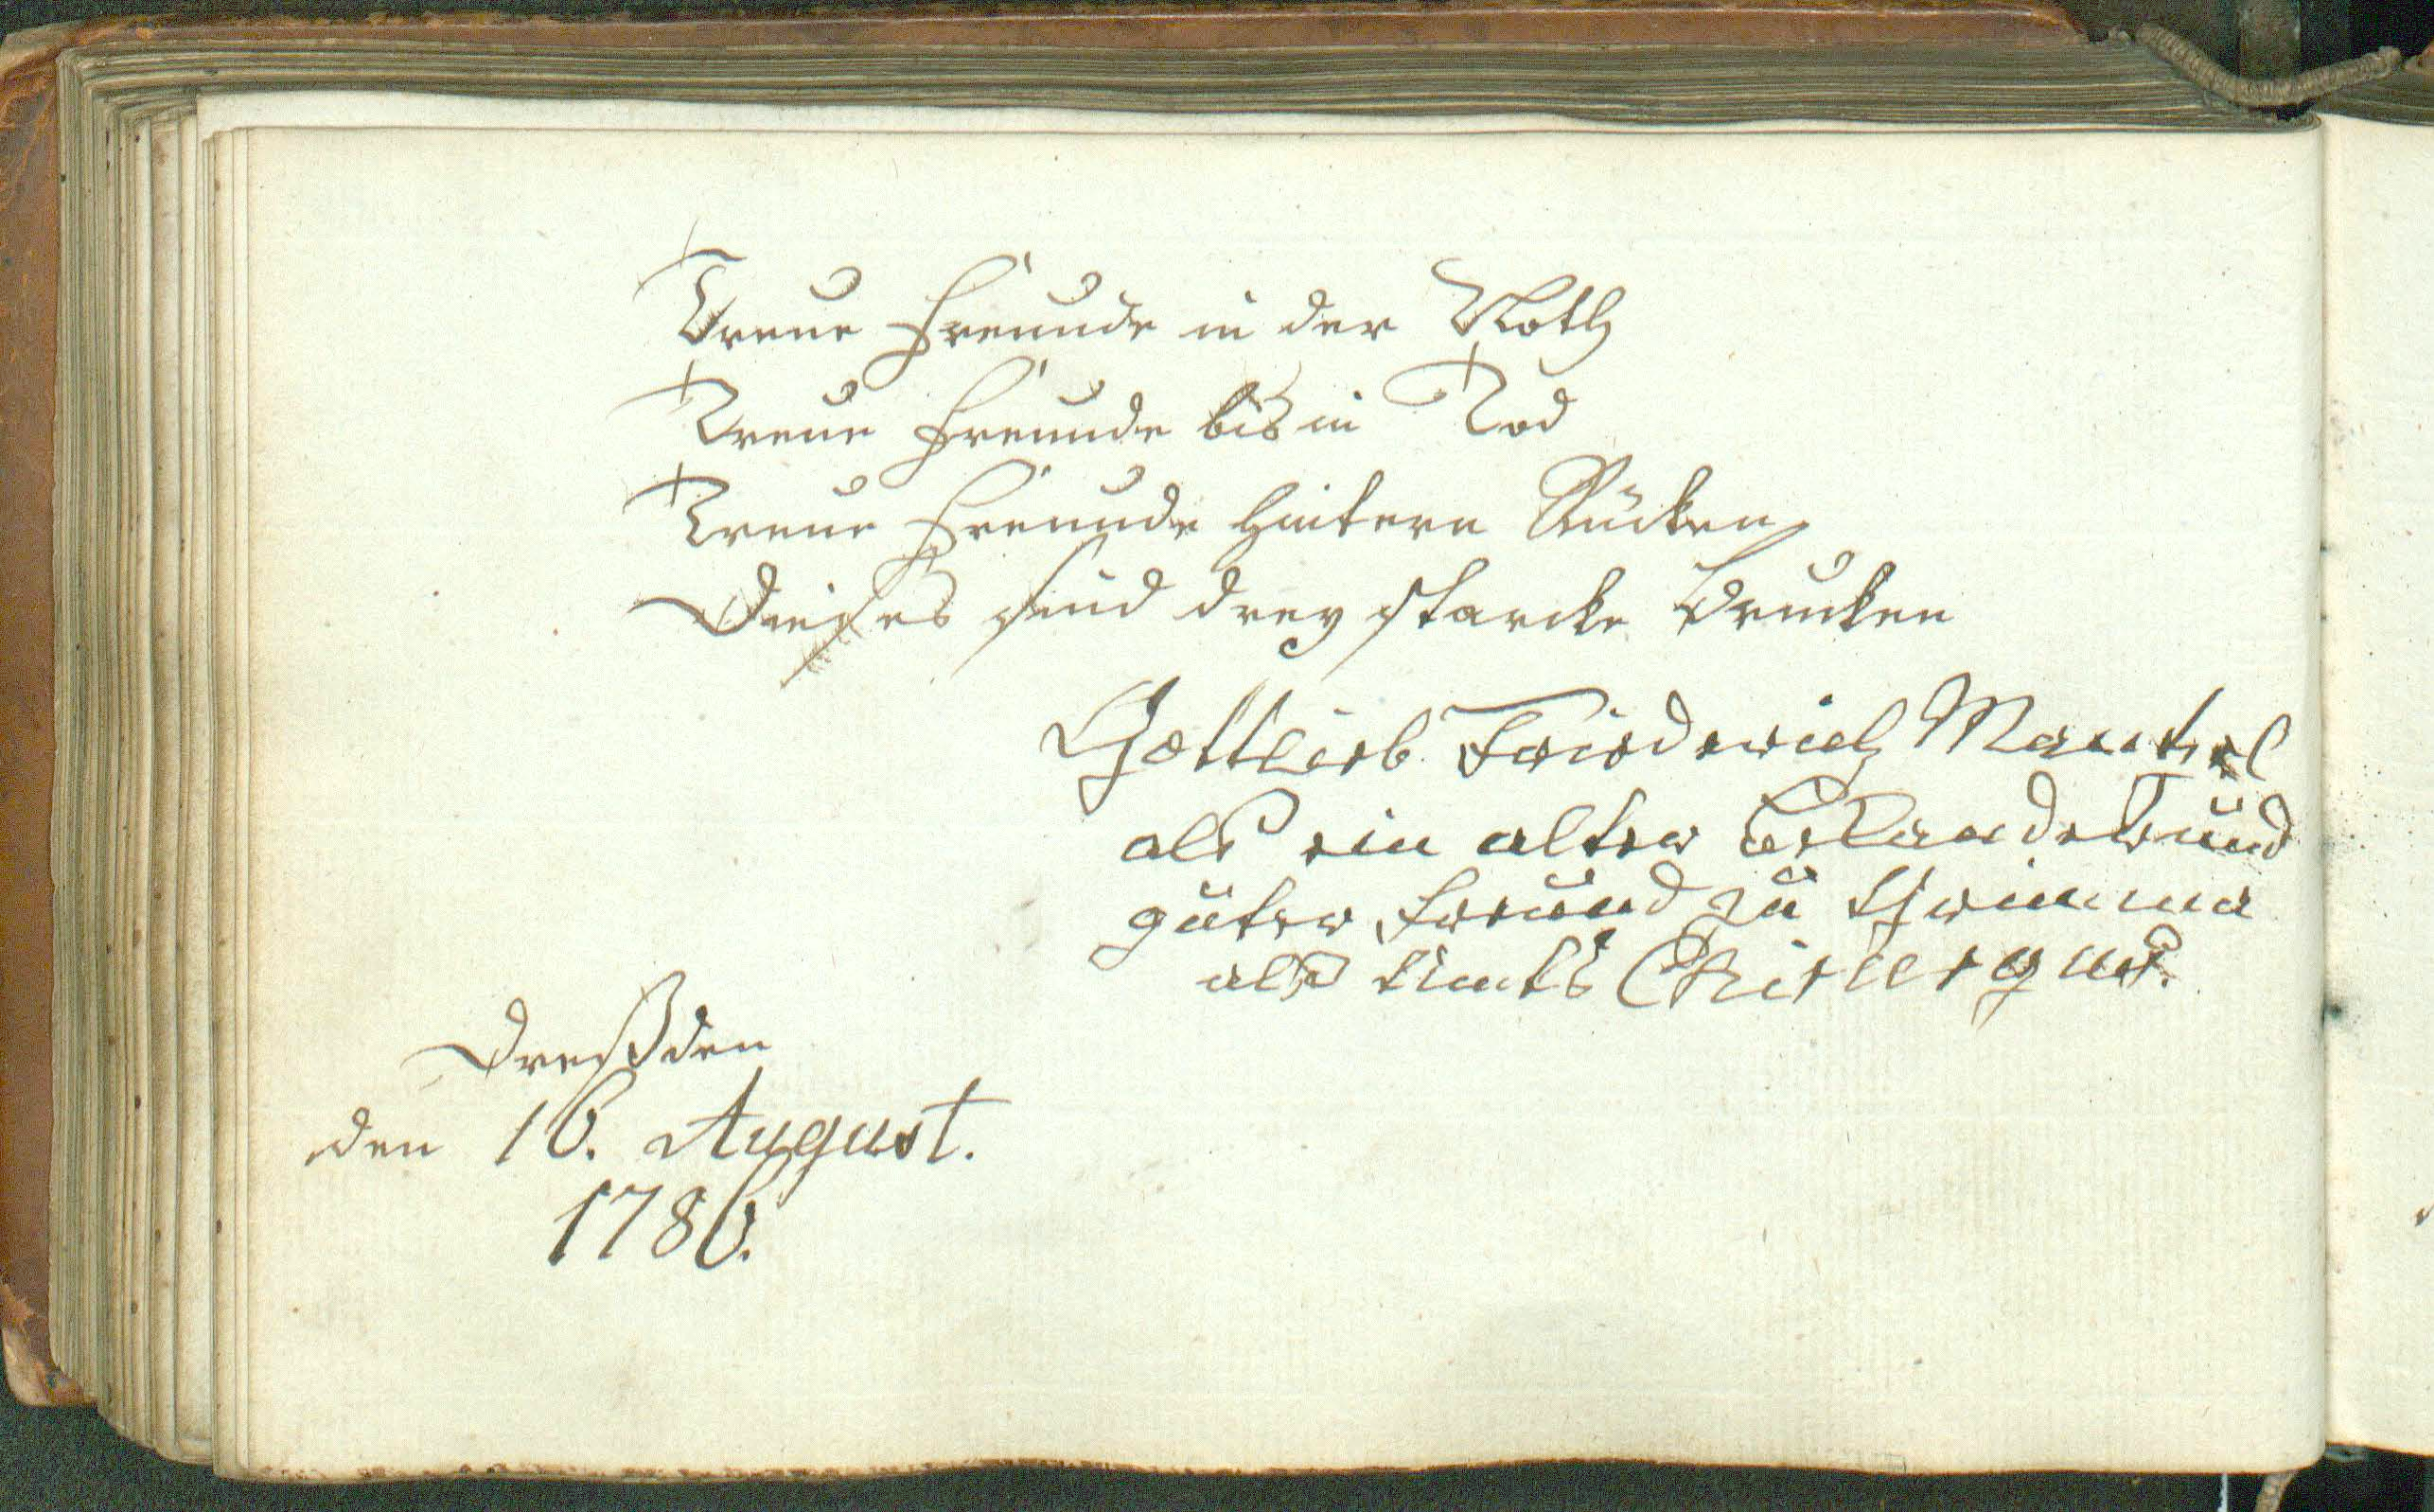 Treue Freunde in der Noth
Treue Freunde bis in Tod
Treue Freunde hintern Rücken
Dieses sind drey starcke Brucken
Gottlieb Friederich Mantel
als ein alter Bekandter und
guter Freund zu Grimma
als Amts Chirurgus.
Dreßden
den 16. August.
1786.